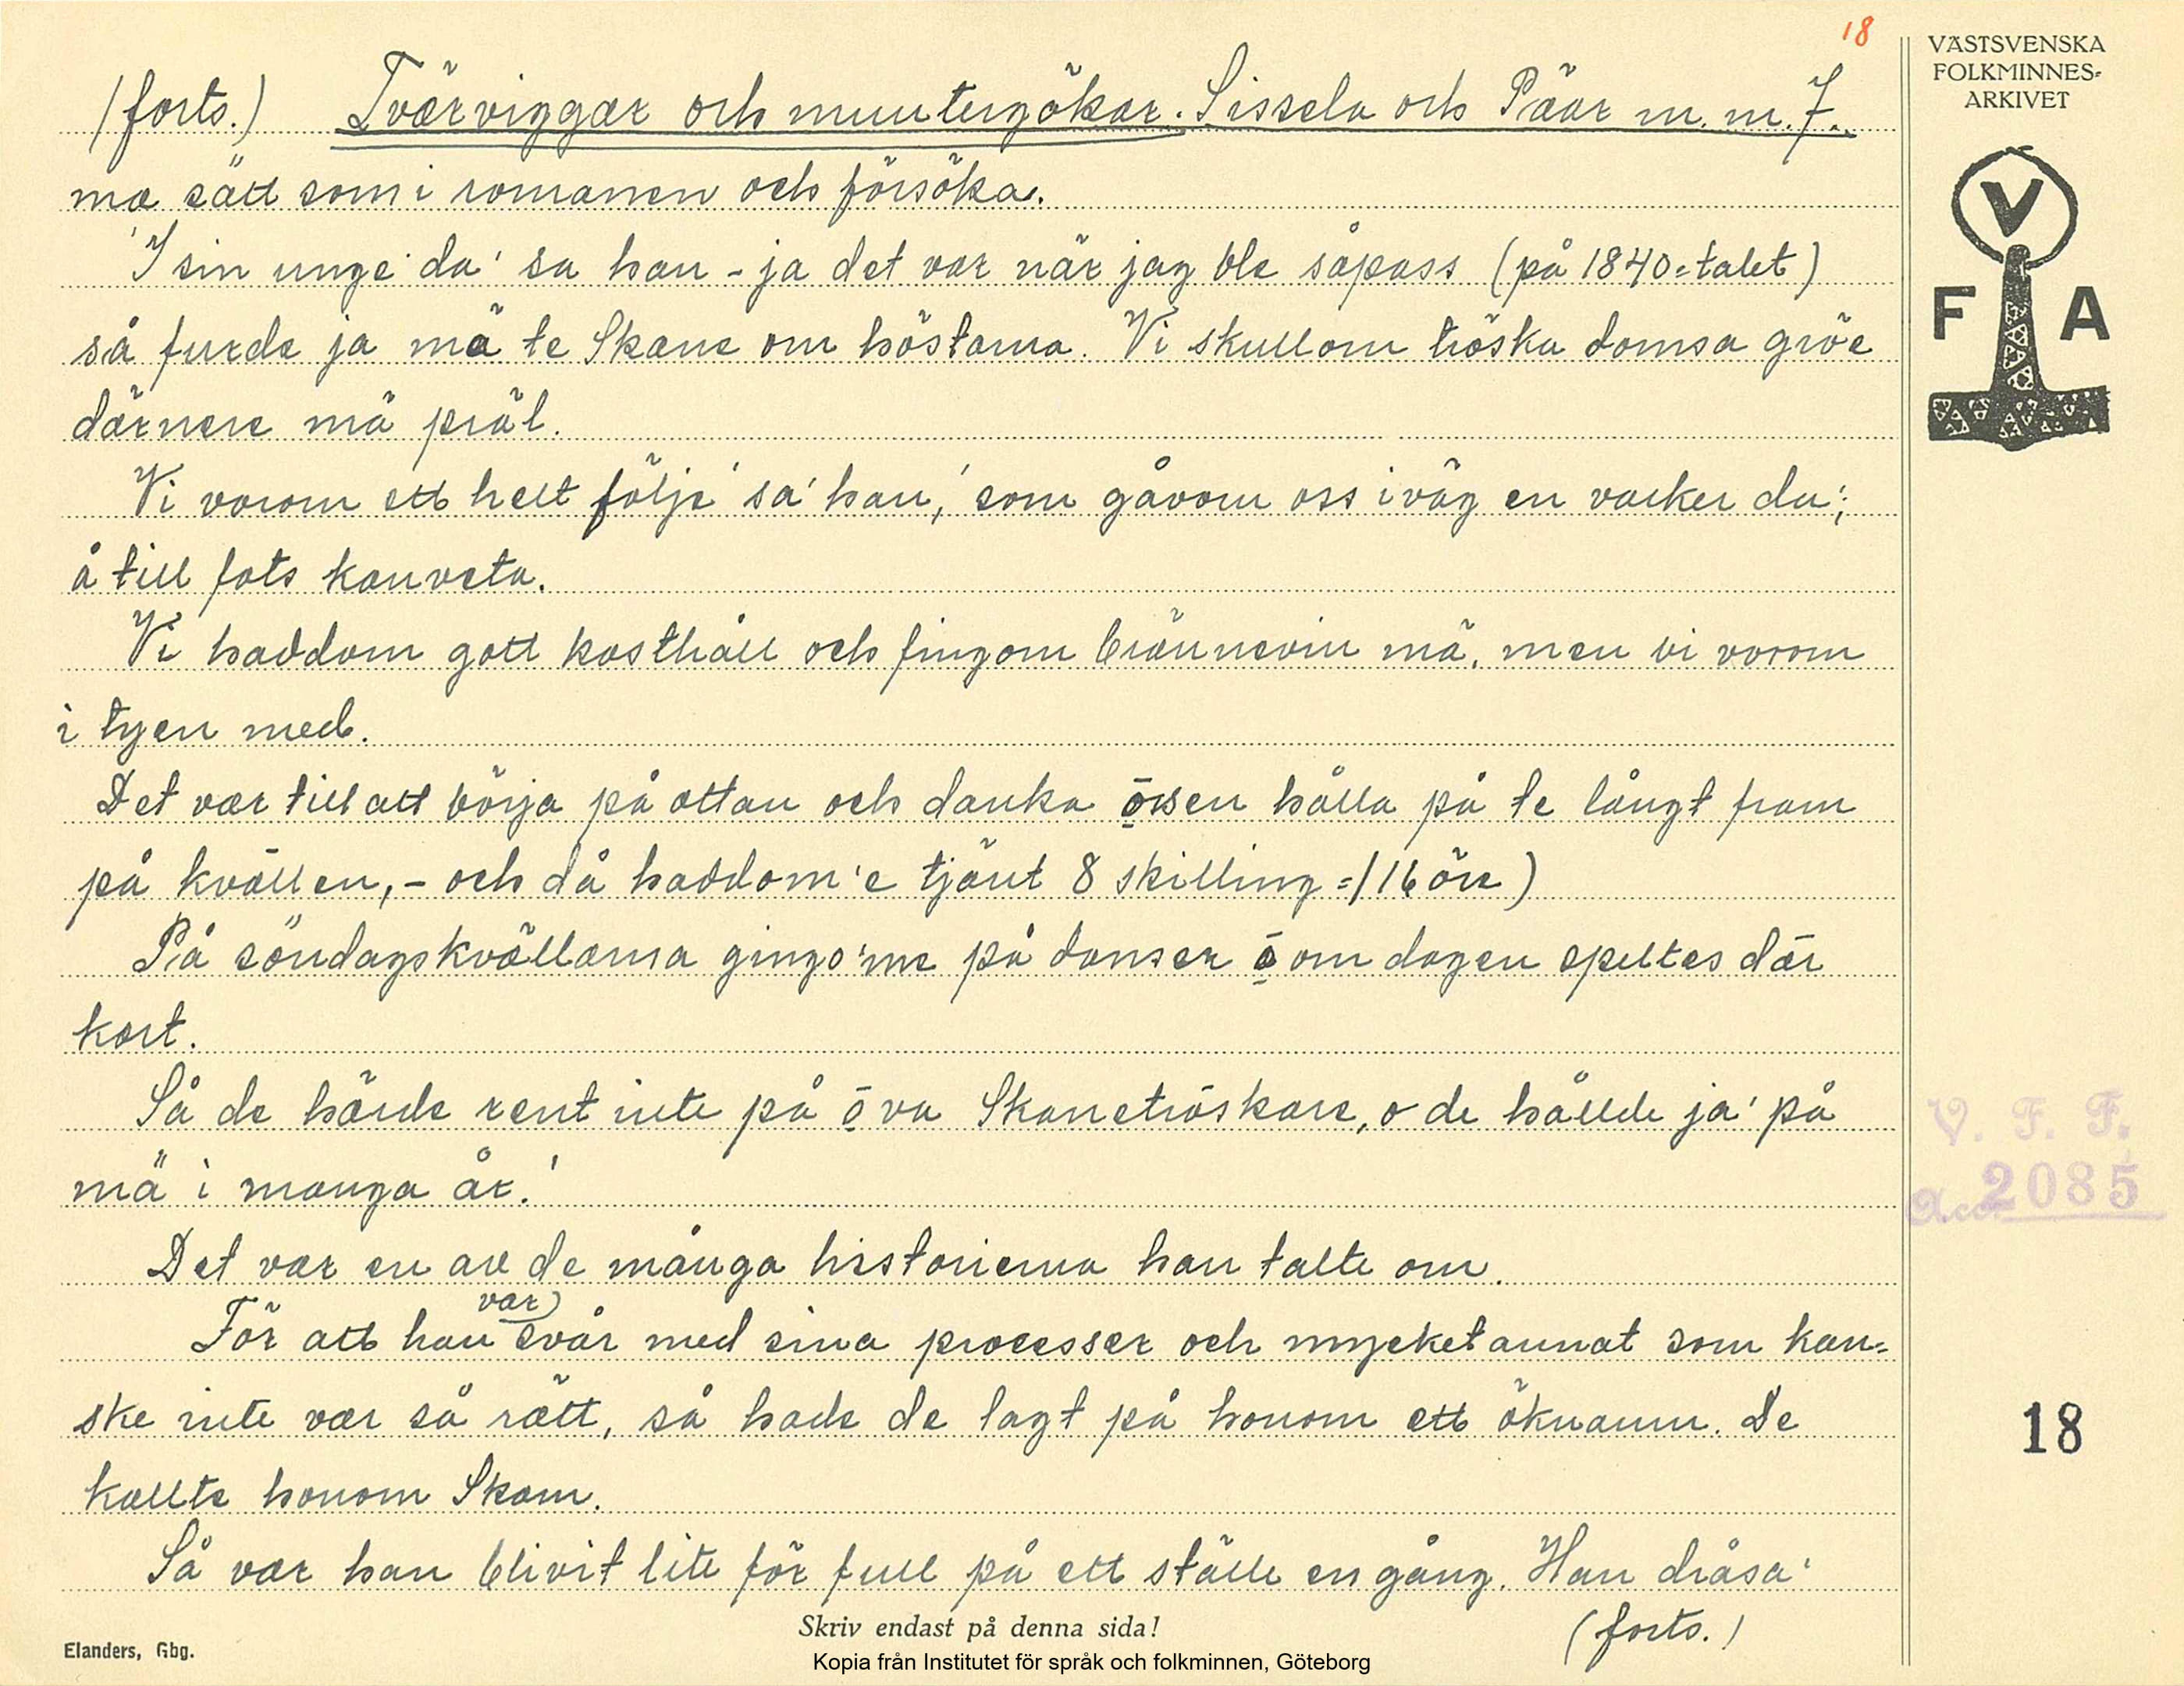 18
VÄSTSVENSKA
FOLKMINNES-
ARKIVET
V
F A
(forts.) Tvärviggar och muntergökar. Sissela och Päar m. m. 7.
ma sätt som i romanen och försöka.
'I sin unge da' sa han - ja det var när jag ble såpass (på 1840-talet)
så furde ja mä te Skane om höstarna. Vi skullom tröska domsa gröe
därnere mä präl.
Vi vorom ett helt följe' sa' han, 'som gåvom oss iväg en vacker da';
å till fots kanveta.
Vi haddom gott kosthåll och fingom brännevin mä, men vi vorom
i tyen med.
Det var till att börja på ottan och danka ösen hålla på te långt fram
på kvällen, - och då haddom'e tjänt 8 skilling =(16 öre)
På söndagskvällarna gingo'me på danser ō om dagen speltes där
kort.
Så de härde rent inte på ō va Skanetröskare, o de hållde ja' på
mä i manga år.'
Det var en av de många historierna han talte om.
För att han var svår med sina processer och mycket annat som kan-
ske inte var så rätt, så hade de lagt på honom ett öknamn. De
kallte honom Skam.
Så var han blivit lite för full på ett ställe en gång. Han dråsa'
(forts.)
V. F. F.
Acc. 2085
18
Skriv endast på denna sida!
Elanders, Gbg.
Kopia från Institutet för språk och folkminnen, Göteborg